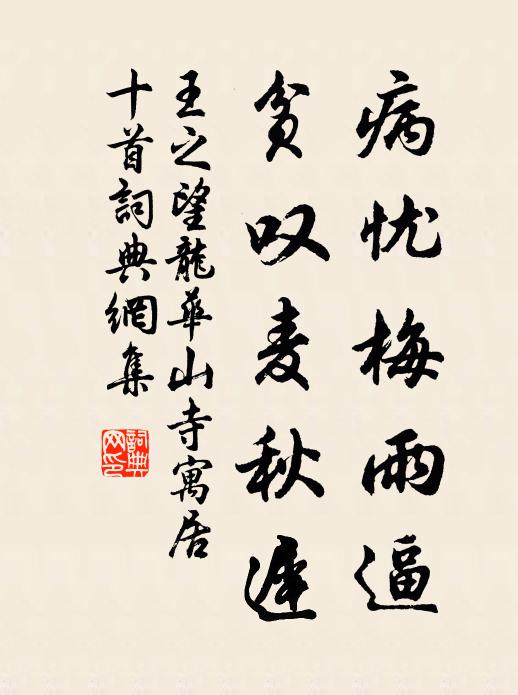 病忧梅雨逼
贫叹麦秋迟
王之望龍華山寺寓居
十首詞典網集
詞典
网印